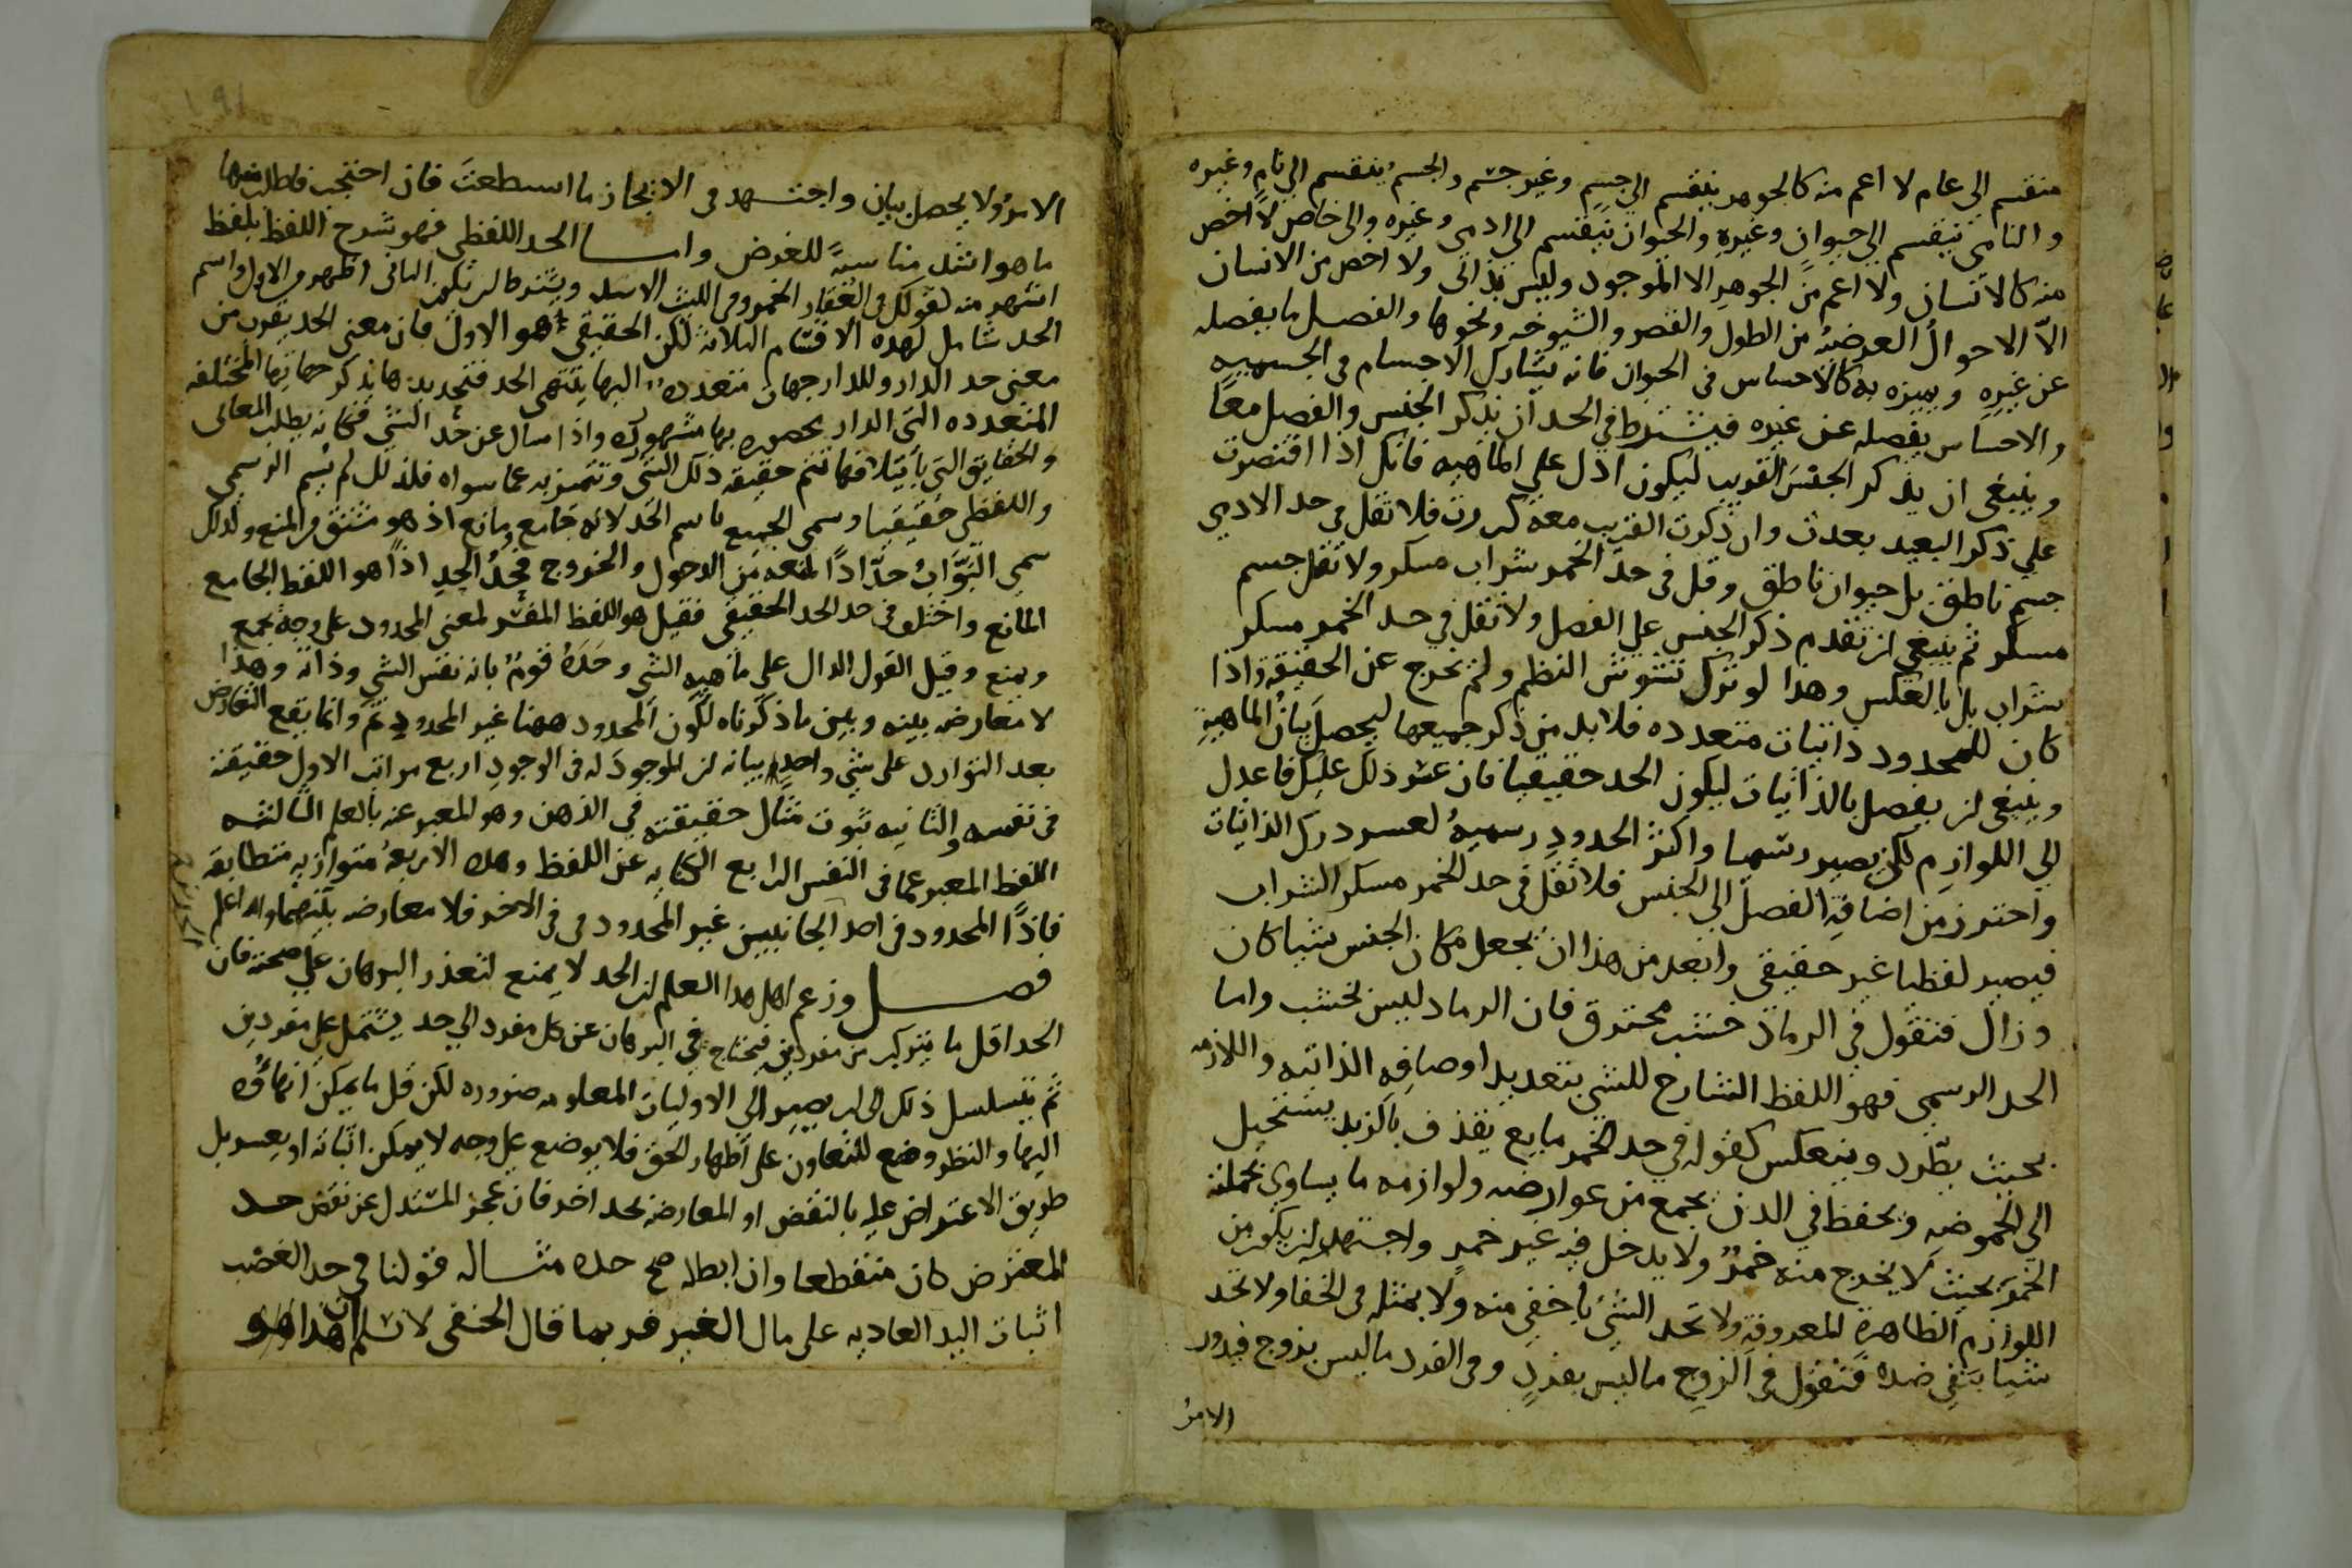 منقسم الى عام لا اعم منه كالجوهر ينقسم الى جسم وغير جسم والجسم ينقسم الى نام وغيره
والنامي ينقسم الى حيوان وغيره والحيوان ينقسم الى ادمي وغيره والى خاص لا اخص
منه كالانسان ولا اعم من الجوهر الا الموجود وليس بذاتى ولا اخص من الانسان
الا الاحوال العرضيه من الطول والقصر والشيوخه ونحوها والفصل ما يفصله
عن غيره ويميزه به كالاحساس في الحيوان فانه يشارك الاجسام في الجسميه
والاحساس يفصله عن غيره فيشترط في الحد ان يذكر الجنس والفصل معا
وينبغي ان يذكر الجنس القريب ليكون ادل علي الماهيه فانك اذا اقتصرت
علي ذكر البعيد بعدت وان ذكرت القريب معه كررت فلا تقل في حد الادمي
جسم ناطق بل حيوان ناطق وقل في حد الخمر شراب مسكر ولا تقل جسم
مسكر ثم ينبغي ان تقدم ذكر الجنس علي الفصل ولا تقل في حد الخمر مسكر
شراب بل بالعكس وهذا لو ترك تشوش النظم ولم تخرج عن الحقيقه واذا
كان للمحدود ذاتيات متعدده فلا بد من ذكر جميعها ليحصل بيان الماهية
وينبغي ان يفصل بالذاتيات ليكون الحد حقيقيا فان عسر ذلك عليك فاعدل
الي اللوازم لكي يصير رسميا واكثر الحدود رسميه لعسر درك الذاتيات
واحترز من اضافة الفصل الى الجنس فلا تقل في حد الخمر مسكر الشراب
فيصير لفظيا غير حقيقي وابعد من هذا ان يجعل مكان الجنس شيا كان
وزال فتقول في الرماد خشب محترق فان الرماد ليس بخشب واما
الحد الرسمي فهو اللفظ الشارح للشي بتعديد اوصافه الذاتيه واللازمه
بحيث يطرد وينعكس كقوله في حد الخمر مايع يقذف بالزبد يستحيل
الى الحموضه ويحفظ في الدن يجمع من عوارضه ولوازمه ما يساوي بجملته
الخمر بحيث لا يخرج منه خمر ولا يدخل فيه غير خمر واجتهد ان يكون من
اللوازم الظاهرة المعروفة ولا تحد الشئ باخفى منه ولا بمثله في الخفا ولا تحد
شيا بنفي ضده فتقول في الزوج ما ليس بفرد وفي الفرد ما ليس بزوج فيدور
الامر
الامر ولا يحصل بيان واجتهد في الايجاز ما استطعت فان احتجت فاطلب منها
ما هو اشد مناسبة للغرض واما الحد اللفظي فهو شرح اللفظ بلفظ
اشهر منه كقولك في العقار الخمر وفي الليث الاسد ويشترط ان يكون الثاني اظهر من الاول واسم
الحد شامل لهذه الاقسام الثلاثة لكن الحقيقي هو الاول فان معنى الحد يقرب من
معنى حد الدار وللدار جهات متعدده اليها ينتهي الحد فتحديدها بذكر جهاتها المختلفه
المتعدده التي الدار محصوره بها مشهورة واذا سال عن حد الشي فكانه يطلب المعاني
والحقايق التي بائتلافها تتم حقيقه ذلك الشي وتتميز به عما سواه فلذلك لم يسم الرسمي
واللفظي حقيقيا وسمى الجميع باسم الحد لانه جامع ومانع اذ هو مشتق من المنع ولذلك
سمي البواب حدادا لمنعه من الدخول والخروج فحد الحد اذا هو اللفظ الجامع
المانع واختلف في حد الحد الحقيقي فقيل هو اللفظ المفسر لمعنى المحدود علي وجه يجمع
ويمنع وقيل القول الدال على ماهيه الشي وحده قوم بانه نفس الشي وذاته وهذا
لا معارضه بينه وبين ما ذكرناه لكون المحدود ههنا غير المحدود ثم وانما يقع التعارض
بعد التوارد على شي واحد بيانه ان الموجود له في الوجود اربع مراتب الاول حقيقته
في نفسه والثانيه ثبوت مثال حقيقته في الذهن وهو المعبر عنه بالعلم الثالثه
اللفظ المعبر عما في النفس الرابع الكتابه عن اللفظ وهذه الاربعه متوازيه متطابقه
فاذا المحدود في احد الجانبين غير المحدود في في الاخر فلا معارضه بينهما والله اعلم
فصل وزعم اهل هذا العلم ان الحد لا يمنع لتعذر البرهان علي صحته فان
الحد اقل ما يتركب من مفردين فيحتاج في البرهان عن كل مفرد الي حد يشتمل علي مفردين
ثم يتسلسل ذلك الى ان يصير الى الاوليات المعلومه ضروره لكن قل ما يمكن انهاؤه
اليها والنظر وضع للتعاون على اظهار الحق فلا يوضع علي وجه لا يمكن اثباته او يعسر بل
طريق الاعتراض عليه بالنقض او المعارضه بحد اخر فان عجز المستدل عن نقض حد
المعترض كان منقطعا وان ابطله صح حده مثاله قولنا في حد الغصب
اثبات اليد العاديه على مال الغير فربما قال الحنفي لا نسلم ان هذا هو